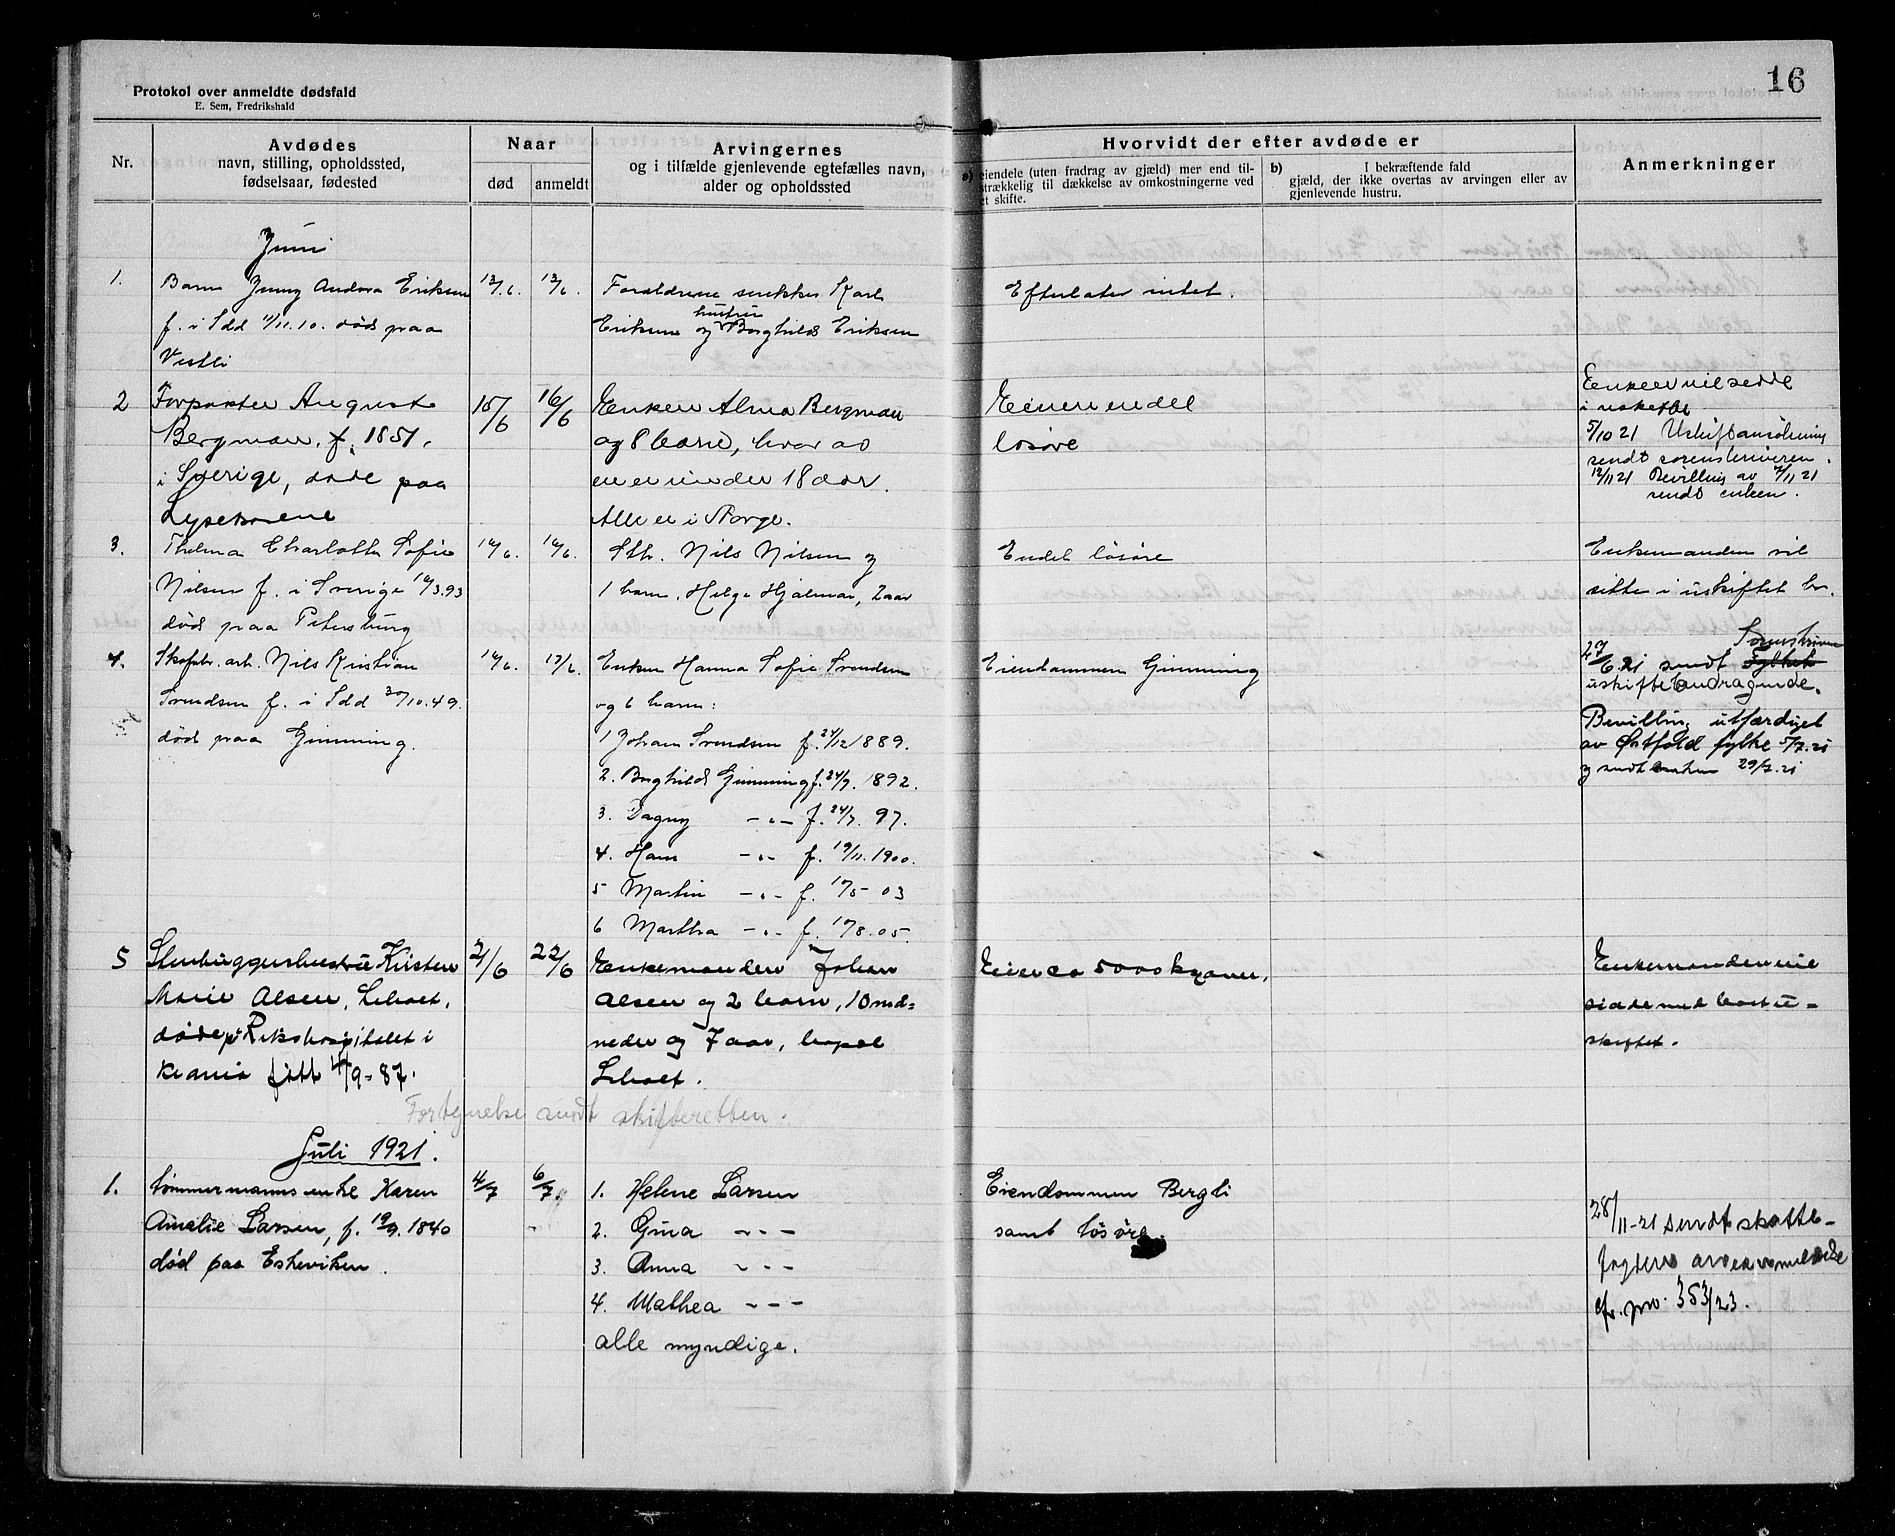 Protokol over anmeldte dødsfald
E. Sem, Fredrikshald
16
Nr.
Avdødes
navn, stilling, opholdssted,
fødselsaar, fødested
Naar
død
anmeldt
Arvingernes
og i tilfælde gjenlevende egtefælles navn,
alder og opholdssted
Hvorvidt der efter avdøde er
a) eiendele (uten fradrag av gjæld) mer end til-
strækkelig til dækkelse av omkostningerne ved
et skifte.
b) I bekræftende fald
gjæld, der ikke overtas av arvingen eller av
gjenlevende hustru.
Anmerkninger
Juni
1.
Barn Jenny Andora Eriksen
f. i Idd 11/11.10. død paa
Vestli
13/6. 13/6.
Forældrene Karl
hustru
Eriksen og Borghild Eriksen
Efterlater intet.
2
Forpakter August
Bergman, f. 1851.
i Sverige, døde paa
Lysekorene
15/6 16/6
Enken Alma Bergman
og 8 barn, hvor av
en er under 18 aar.
Alle er i Norge.
Eier en del
løsøre
Enken vil sidde
i uskifte
5/10 21 Uskifteansøkning
sendt sorenskriveren.
12/11 21 Bevilling av 7/11 21
sendt enken.
3.
Thelma Charlotta Sofie
Nilsen f. i Sverige 16/3.93
død paa Petersburg
14/6. 16/6.
Sth. Nils Nilsen og
1 barn, Helge Hjalmar, 2 aar
Endel løsøre
Enkemanden vil
sitte i uskiftet bo.
4.
Skofabr. arb. Nils Kristian
Svendsen f. i Idd 30/10.49.
død paa Gimming.
14/6. 17/6.
Enken Hanna Sofie Svendsen
og 6 barn:
1 Johan Svendsen f. 24/12 1889.
2. Borghild Gimming f. 24/9. 1892.
3. Dagny -"- f. 24/7. 97.
4. Hans -"- f. 19/11. 1900.
5 Martin -"- f. 10/5-03
6 Martha -"- f. 10/8.05.
Eiendommen Gimming
Sorenskriver
27/6.21 sendt Fylket
uskifteandragende.
Bevilling utfærdiget
av Østfold fylke 5/7.21
og sendt enken 29/7.21
5
Stenhuggerhustru Kristen
Marie Olsen, Liholt,
døde på Rikshospitalet i
Kr.ania født 4/9-87.
2/6 22/6
Enkemanden Johan
Olsen og 2 barn, 10 må=
neder og 7 aar, bopæl
Liholt.
Eier ca 5000 kroner.
Enkemanden vil
sidde med boet u=
skiftet.
Fortegnelse sendt skifteretten.
Juli 1921.
1.
Tømmermanns enke Karen
Amalie Larsen, f. 19/9. 1840
død paa Eskeviken.
4/7 6/7
1. Helene Larsen
2. Gina -"-
3. Anna -"-
4. Mathea -"-
alle myndige.
Eiendommen Bergli
samt løsøre.
28/11-21 sendt skatte-
fogden arveanmeldelse
cfr. jnr. 353/23.